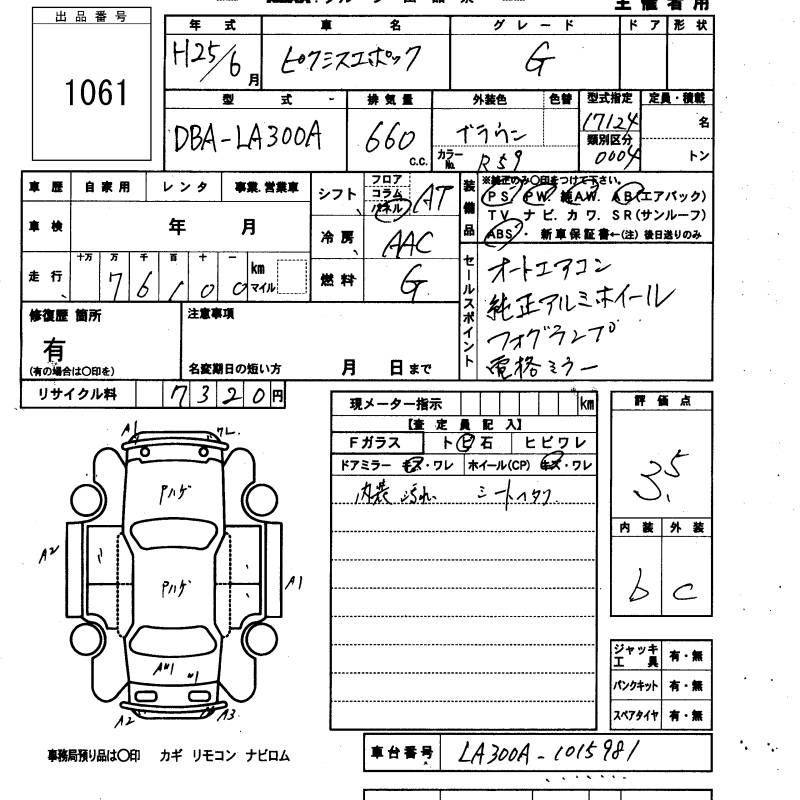 出品番号
1061
年式 車名 グレード ドア 形状
H25/6月 ピクシスエポック G
型式 排気量 外装色 色替 型式指定 定員・積載
DBA-LA300A 660 c.c. ブラウン 17124 名
カラーNo. R59 類別区分 0004 トン
車歴 自家用 レンタ 事業.営業車
車検 年 月
走行 十万 万 千 百 十 一 km マイル
76100
シフト フロア コラム パネル AT
冷房 AAC
燃料 G
装備品 ※純正のみ〇印をつけて下さい。
PS. PW. 純AW. AB(エアバック)
TV ナビ. カワ. SR(サンルーフ)
ABS 新車保証書←(注) 後日送りのみ
セールスポイント
オートエアコン
純正アルミホイール
フォグランプ
電格ミラー
修復歴 箇所 注意事項
有
(有の場合は〇印を) 名変期日の短い方 月 日まで
リサイクル料 7320円
現メーター指示 km
【査定員記入】
Fガラス トビ石 ヒビワレ
ドアミラー キズ・ワレ ホイール(CP) キズ・ワレ
内装 汚れ
評価点
3.5
内装 外装
b c
A1 ワレ
Pハゲ
A2 A1
Pハゲ
A2 A3
ジャッキ工具 有・無
パンクキット 有・無
スペアタイヤ 有・無
事務局預り品は〇印 カギ リモコン ナビロム
車台番号 LA300A-1015981